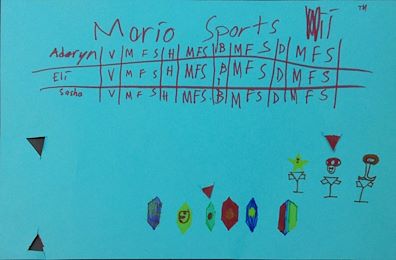 Mario Sports Wii ™
Adaryn V M F S H MFS B M F S D M F S
Eli V M F S H MFS B M F S D M F S
Sasha V M F S H MFS B M F S D M F S